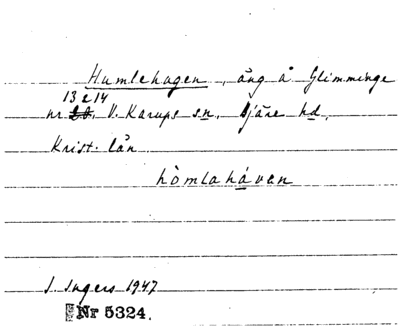 Humlehagen, äng å Glimminge
13 o 14
nr 20. V. Karups sn, Bjäre hd,
Krist. län
hòmlahávan
I. Ingers 1947
Nr 5324.